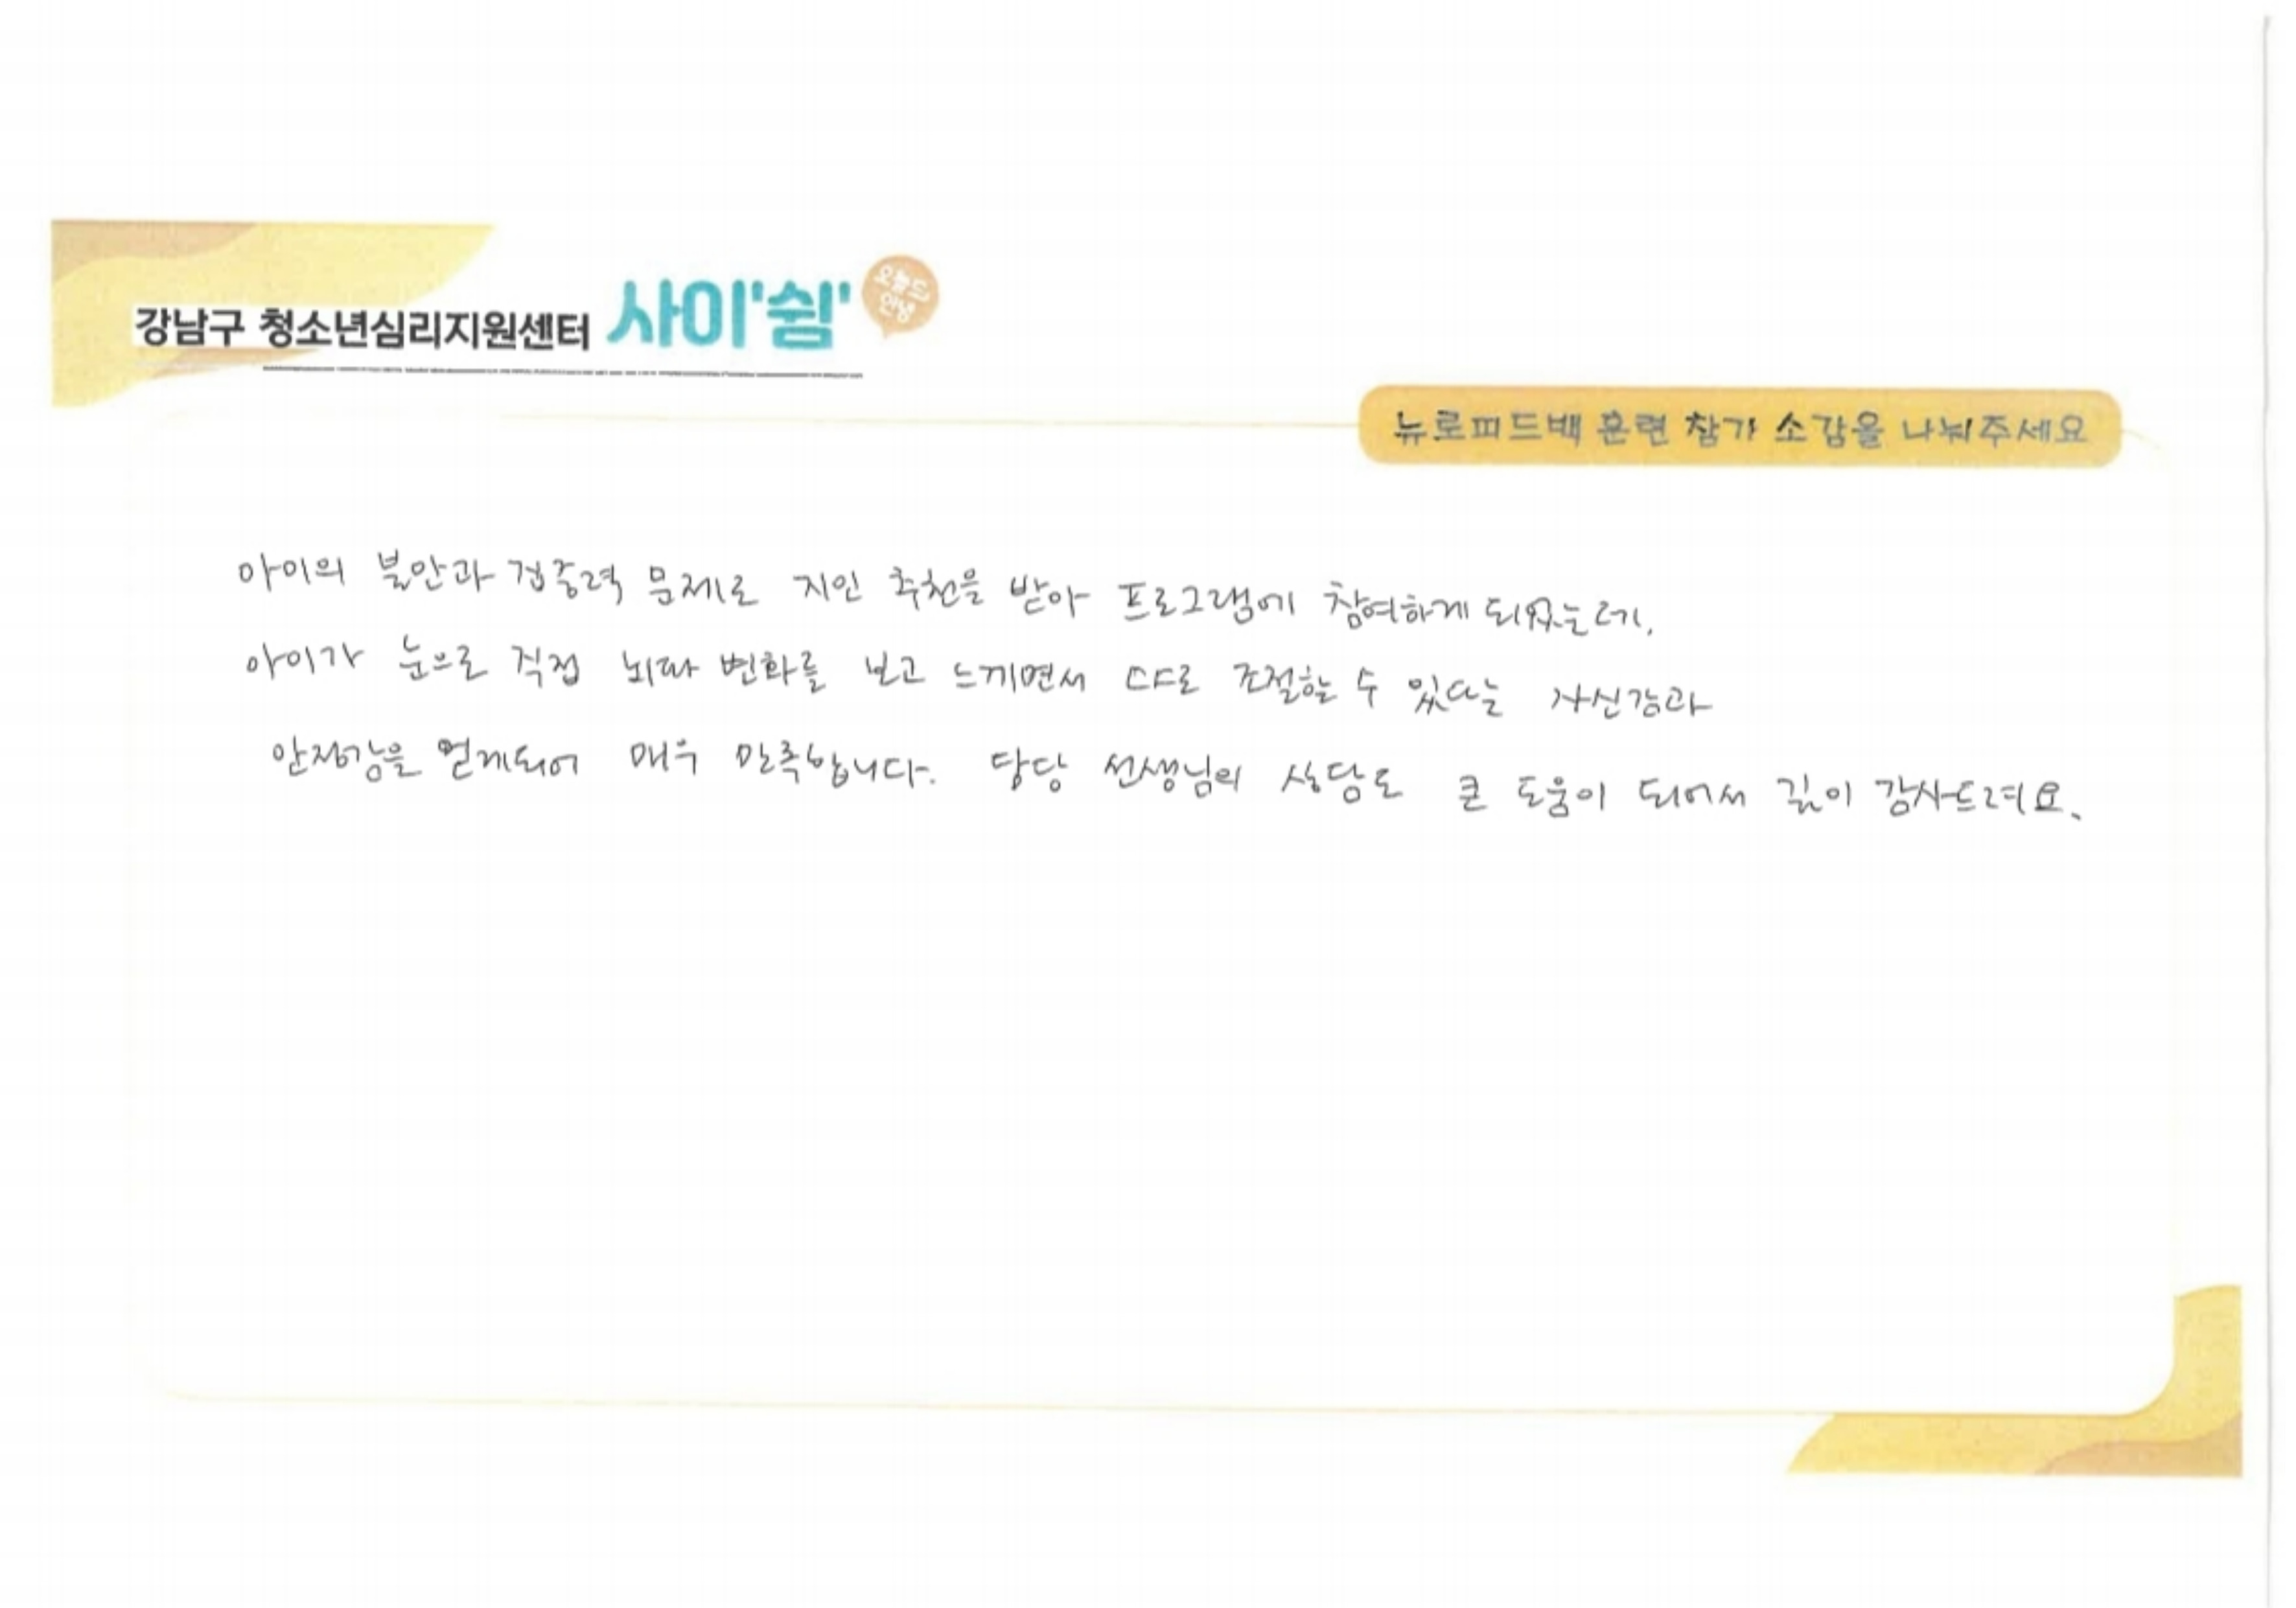 강남구 청소년심리지원센터 사이'쉼'
오늘도
안녕
뉴로피드백 훈련 참가 소감을 나눠주세요
아이의 불안과 집중력 문제로 지인 추천을 받아 프로그램에 참여하게 되었는데,
아이가 눈으로 직접 뇌파 변화를 보고 느끼면서 스스로 조절할 수 있다는 자신감과
안정감을 얻게되어 매우 만족합니다. 담당 선생님의 상담도 큰 도움이 되어서 깊이 감사드려요.